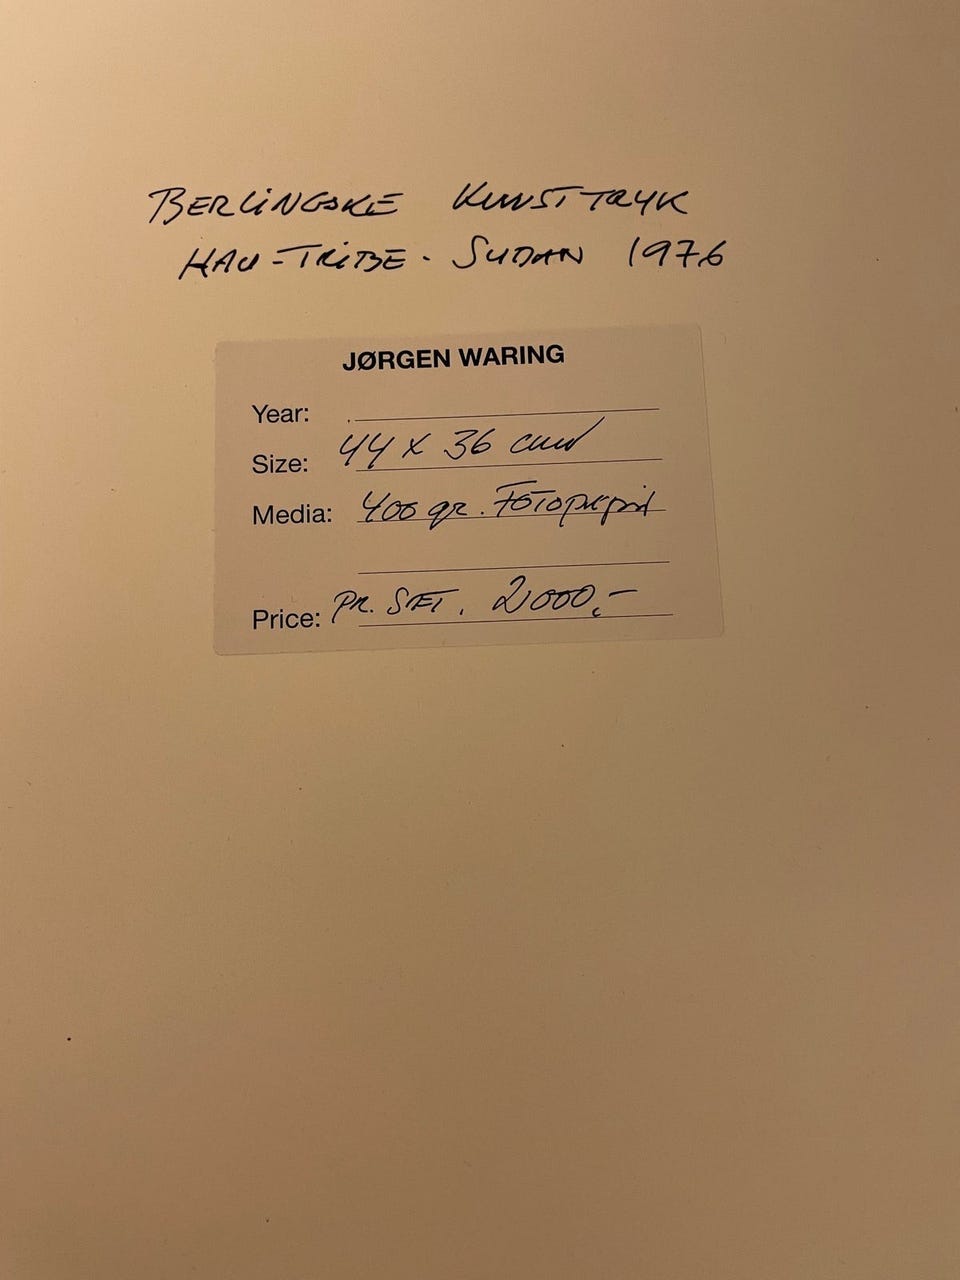 BERLINGSKE KUNSTTRYK
HAU-TRIBE. SUDAN 1976
JØRGEN WARING
Year:
Size: 44 x 36 cm
Media: 400 gr. FOTOpapir
Price: PR. SÆT. 2000,-